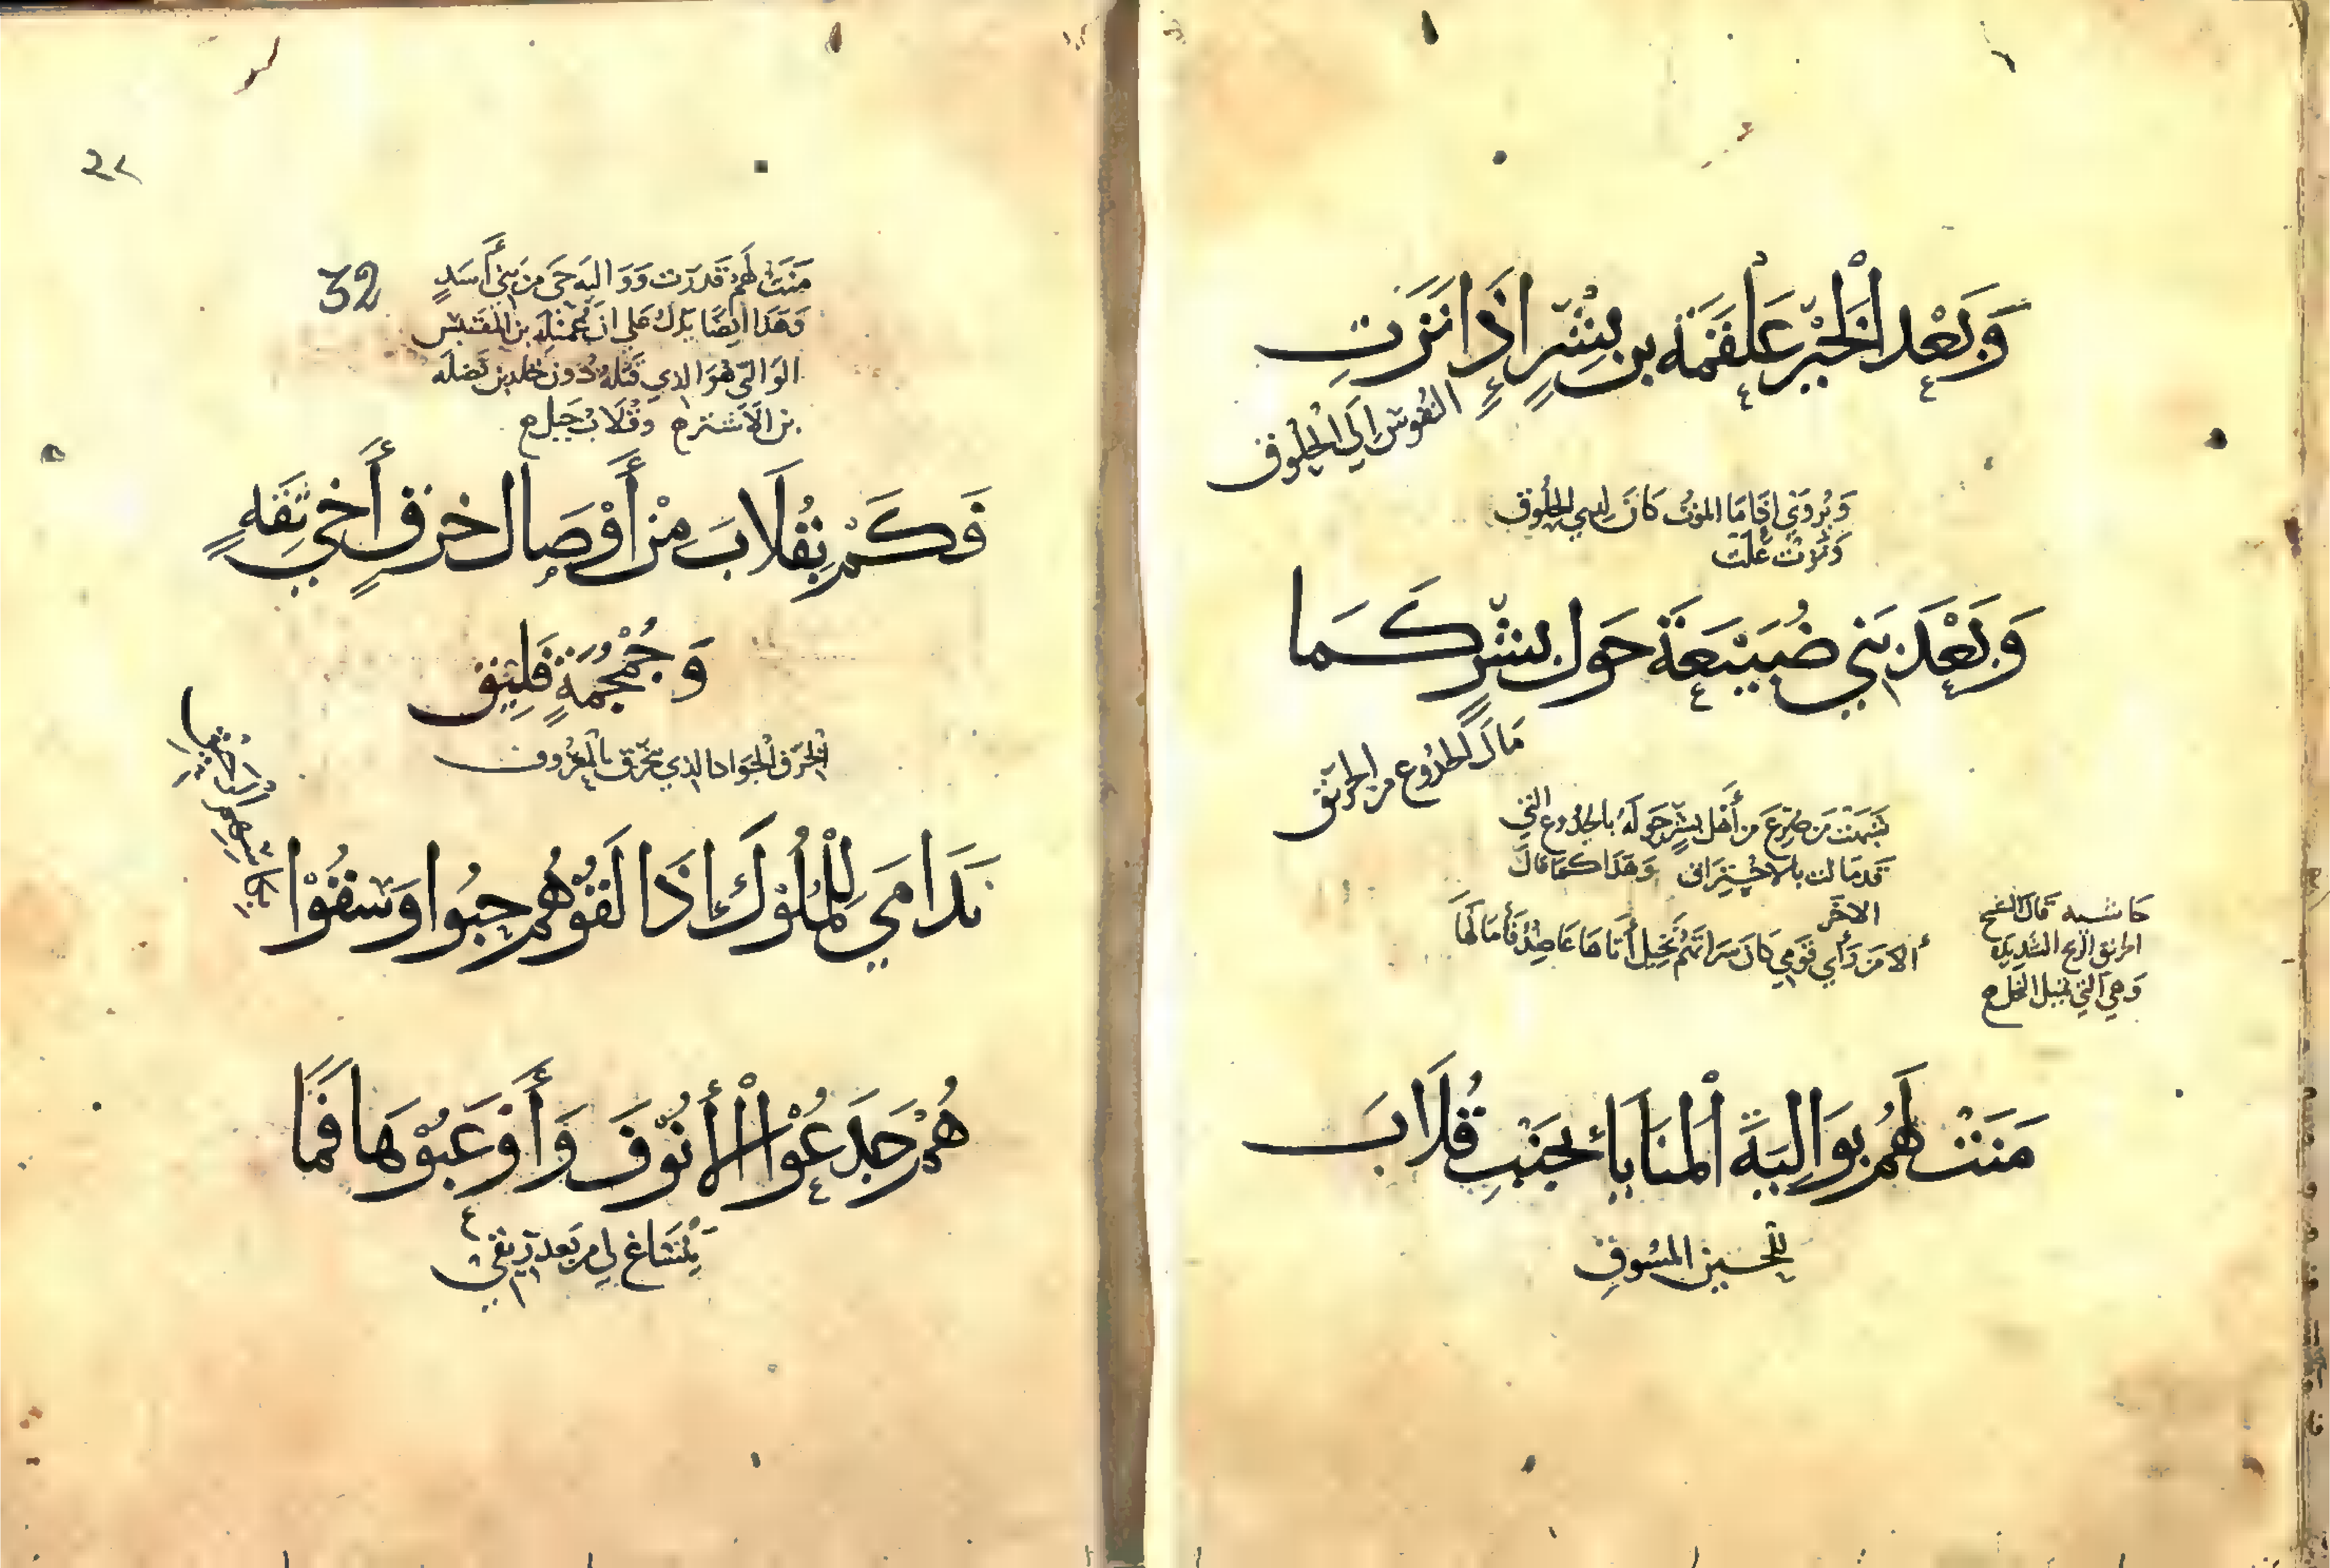 وَبَعْدَ الْخَيْرِ عَلْقَمَةَ بنِ بِشْرٍ إِذَا نَزَتِ
النُّفُوسُ إِلَى الْحُلُوقِ
وَيُرْوَى إِذَا مَا الموْتُ كَانَ لدى الحُلُوقِ
وَنَزَتْ عَلَتْ
وَبَعْدَ بَنِي ضُبَيْعَةَ حَوْلَ بِشْرٍ كَمَا
مَالَ الجُذُوعُ مِنَ الحَرِيقِ
شَبَّهَتْ مَنْ صُرِعَ مِنْ أَهْلِ بِشْرٍ حَوْلَهُ بِالجُذُوعِ الَّتِي
قَدْ مَالَتْ بِالاحْتِرَاقِ وَهَذَا كَمَا قَالَ
الآخَر
ألا مَنْ رَأَى قَوْمِي كَأَنَّ سَرَاتَهُمْ نَخِيلٌ أَتَاهَا عَاضِدٌ فَأَمَالَهَا
حاشية قَالَ الشيخ
الريح الشَّدِيدَة
وَهِيَ الَّتِي تميل النخل
مَنَتْ لَهُمُ بِوَالِبَةَ الْمَنَايَا بِجَنْبِ قُلَابَ
لِلْحَيْنِ المَسُوقِ
٣٢
32
مَنَتْ لَهُمْ قَدَرَتْ وَوَالِبَة حَيّ مِنْ بَنِي أَسَدٍ
وَهَذَا أيضًا يَدُلُّ عَلَى أنّ عُمَيْلَة بن المُقْتَبِس
الوَالبي هُوَ الذي قَتَلَهُ دُونَ خَالِد بن نَضْلَة
بن الأَشْتَر وقُلَابُ جَبَل
فَكَمْ بِقُلَابَ مِنْ أَوْصَالِ خِرْقٍ أَخِي ثِقَةٍ
وَجُمْجُمَةٍ فَلِيقِ
الخِرْقُ الْجَوَادُ الذي يَتَخَرَّق بِالْمَعْرُوفِ
نَدَامَى لِلْمُلُوكِ إِذَا لَقُوهُمْ حُبُوا وَسُقُوا
بكأسِهِم الرحيق
هُمُ جَدَعُوا الْأُنُوفَ وَأَوْعَبُوهَا فَمَا
يَنْسَاغُ لِي مِنْ بَعْدُ رِيقِي